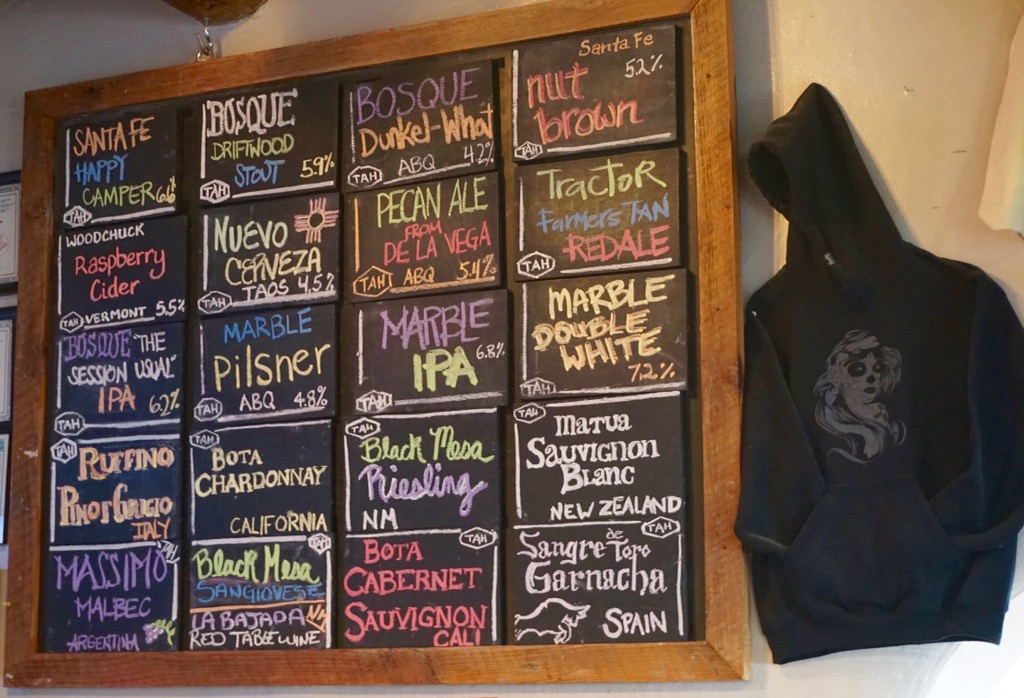 SANTA FE
HAPPY
CAMPER 6.6%
TAH
BOSQUE
DRIFTWOOD
STOUT 5.9%
TAH
BOSQUE
Dunkel-What
ABQ 4.2%
TAH
Santa Fe
5.2%
nut
brown
TAH
WOODCHUCK
Raspberry
Cider
TAH VERMONT 5.5%
NUEVO
CERVEZA
TAH TAOS 4.5%
PECAN ALE
FROM
DE LA VEGA
TAH ABQ 5.4%
TRACTOR
Farmers TAN
REDALE
TAH
BOSQUE "THE
SESSION USUAL"
IPA 6.2%
TAH
MARBLE
Pilsner
ABQ 4.8%
TAH
MARBLE
IPA 6.8%
TAH
MARBLE
DOUBLE
WHITE
7.2%
TAH
TAH
RUFFINO
PINOT GRIGIO
ITALY
TAH
BOTA
CHARDONNAY
CALIFORNIA
TAH
Black Mesa
Riesling
NM
TAH
MATUA
SAUVIGNON
BLANC
NEW ZEALAND
TAH
MASSIMO
MALBEC
ARGENTINA
TAH
Black Mesa
SANGIOVESE
LA BAJADA NM
RED TABLE WINE
TAH
BOTA
CABERNET
SAUVIGNON
CALI
TAH
Sangre de Toro
Garnacha
SPAIN